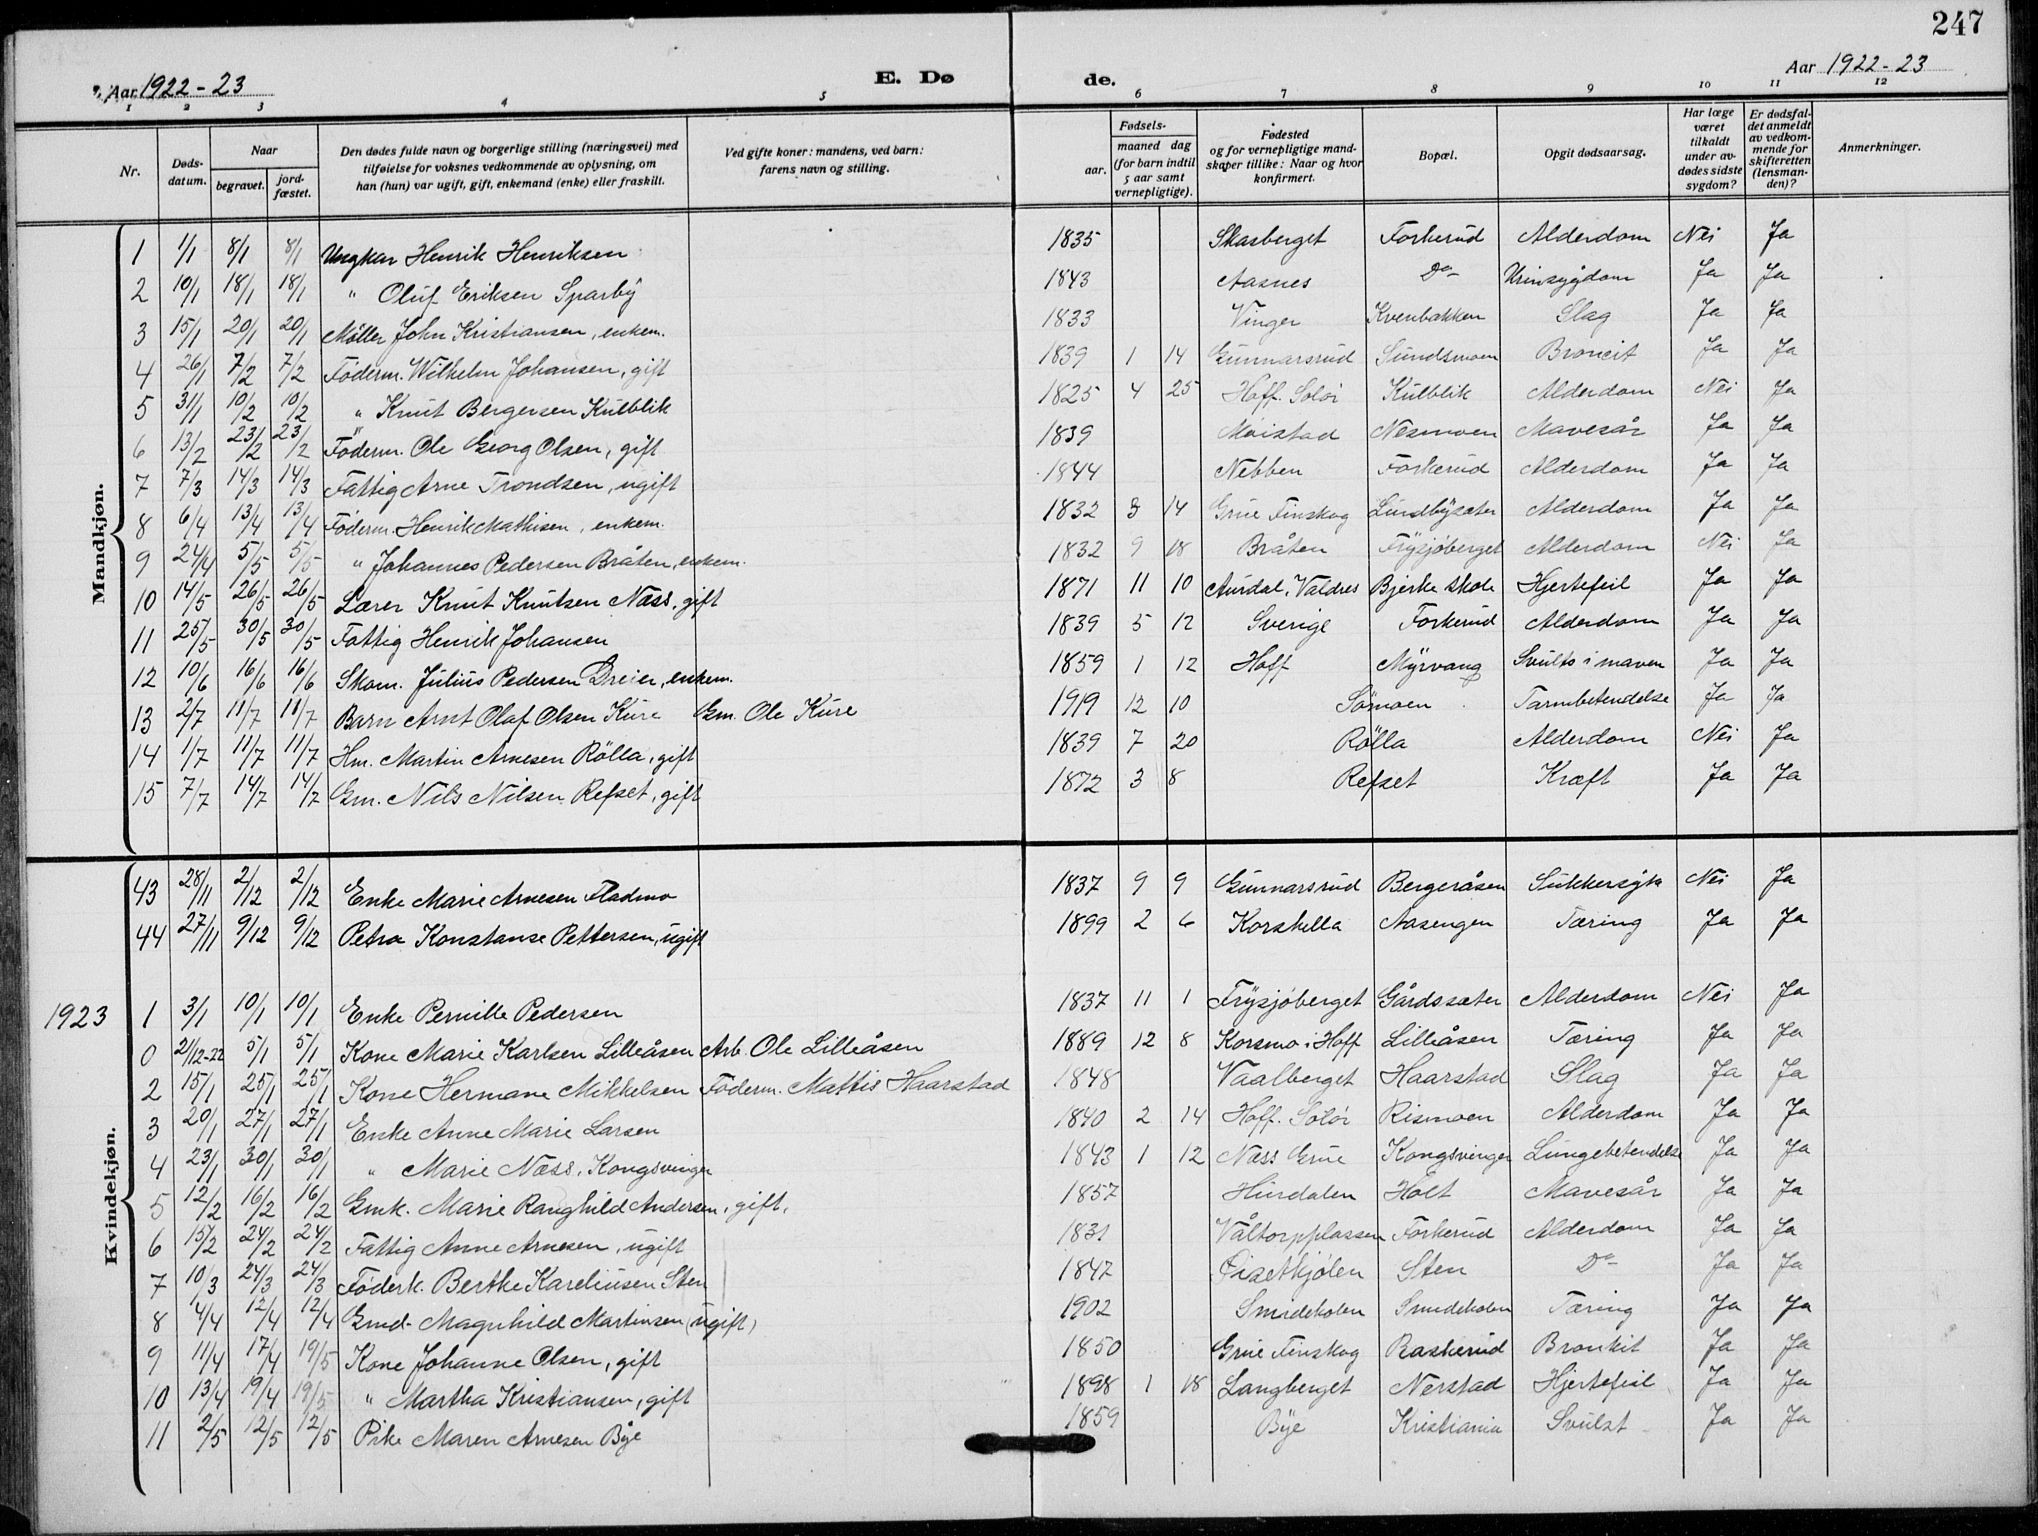 247
Aar 1922-23 E. Døde. Aar 1922-23
1 2 3 4 5 6 7 8 9 10 11 12
Nr. Døds-datum. Naar begravet. jord-fæstet. Den dødes fulde navn og borgerlige stilling (næringsvei) med tilføielse for voksnes vedkommende av oplysning, om han (hun) var ugift, gift, enkemand (enke) eller fraskilt. Ved gifte koner: mandens, ved barn: farens navn og stilling. Fødsels- aar. maaned dag (for barn indtil 5 aar samt vernepligtige). Fødested og for vernepligtige mand-skaper tillike: Naar og hvor konfirmert. Bopæl. Opgit dødsaarsag. Har læge været tilkaldt under av-dødes sidste sygdom? Er dødsfal-det anmeldt av vedkom-mende for skifteretten (lensman-den)? Anmerkninger.
Mandkjøn.
1 1/1 8/1 8/1 Ungkar Henrik Henriksen 1835 Skasberget Forkerud Alderdom Nei Ja
2 10/1 18/1 18/1 " Oluf Eriksen Sparby 1843 Aasnes Do Urinsygdom Ja Ja
3 15/1 20/1 20/1 Møller John Kristiansen, enkem. 1833 Vinger Kvenbakken Slag Ja Ja
4 26/1 7/2 7/2 Föderm. Wilhelm Johansen, gift 1839 1 14 Gunnarsrud Sundsmoen Broncit Ja Ja
5 31/1 10/2 10/2 " Knut Bergersen Kulblik 1825 4 25 Hoff. Solör Kulblik Alderdom Nei Ja
6 13/2 23/2 23/2 Föderm. Ole Georg Olsen, gift 1839 Moistad Nesmoen Mavesår Ja Ja
7 7/3 14/3 14/3 Fattig Arne Trondsen, ugift 1844 Nebben Forkerud Alderdom Ja Ja
8 6/4 13/4 13/4 Föderm. Henrik Mathisen, enkem. 1832 8 14 Grue Finskog Lundbysæter Alderdom Ja Ja
9 24/4 5/5 5/5 " Johannes Pedersen Bråten, enkem. 1832 9 18 Bråten Frysjöberget Alderdom Nei Ja
10 14/5 26/5 26/5 Lærer Knut Knutsen Næss, gift 1871 11 10 Aurdal, Valdres Bjerke skole Hjertefeil Ja Ja
11 25/5 30/5 30/5 Fattig Henrik Johansen 1839 5 12 Sverige Forkerud Alderdom Ja Ja
12 10/6 16/6 16/6 Skom. Julius Pedersen Dreier, enkem. 1859 1 12 Hoff Myrvang Svults i maven Ja Ja
13 2/7 11/7 11/7 Barn Arnt Olaf Olsen Kure Gm. Ole Kure 1919 12 10 Sömoen Tarmbetendelse Ja Ja
14 1/7 11/7 11/7 Hm. Martin Arnesen Rölla, gift 1839 7 20 Rölla Alderdom Nei Ja
15 7/7 14/7 14/7 Gm. Nils Nilsen Refset, gift 1872 3 8 Refset Kræft Ja Ja
Kvindekjøn.
43 28/11 2/12 2/12 Enke Marie Arnesen Fladmo 1837 9 9 Gunnarsrud Bergeråsen Sukkersyke Nei Ja
44 27/11 9/12 9/12 Petra Konstanse Pettersen, ugift 1899 2 6 Korskella Aasengen Tæring Ja Ja
1923 1 3/1 10/1 10/1 Enke Pernille Pedersen 1837 11 1 Frysjöberget Gårdssæter Alderdom Nei Ja
0 2/12-22 5/1 5/1 Kone Marie Karlsen Lilleåsen Arb. Ole Lilleåsen 1889 12 8 Korsmo i Hoff Lilleåsen Tæring Ja Ja
2 15/1 25/1 25/1 Kone Hermane Mikkelsen Föderm. Mattis Haarstad 1848 Vaalberget Haarstad Slag Ja Ja
3 20/1 27/1 27/1 Enke Anne Marie Larsen 1840 2 14 Hoff. Solör Rismoen Alderdom Ja Ja
4 23/1 30/1 30/1 " Marie Næss, Kongsvinger 1843 1 12 Næss Grue Kongsvinger Lungebetendelse Ja Ja
5 12/2 16/2 16/2 Gmk. Marie Ranghild Andersen, gift, 1857 Hirdalen Holt Mavesår Ja Ja
6 15/2 24/2 24/2 Fattig Anne Arnesen, ugift 1831 Våltorpplassen Forkerud Alderdom Ja Ja
7 10/3 24/3 24/3 Föderk. Berthe Kareliusen Sten 1847 Öisetkjölen Sten Do Ja Ja
8 4/4 12/4 12/4 Gmd. Magnhild Martinsen (ugift) 1902 Smidekolen Smidekolen Tæring Ja Ja
9 11/4 17/4 19/5 Kone Johanne Olsen, gift 1850 Grue Finskog Raskerud Bronkit Ja Ja
10 13/4 19/4 19/5 " Martha Kristiansen, gift 1898 1 18 Langberget Nerstad Hjertefeil Ja Ja
11 2/5 12/5 12/5 Pike Maren Arnesen Bye 1859 Bye Kristiania Svulst Ja Ja